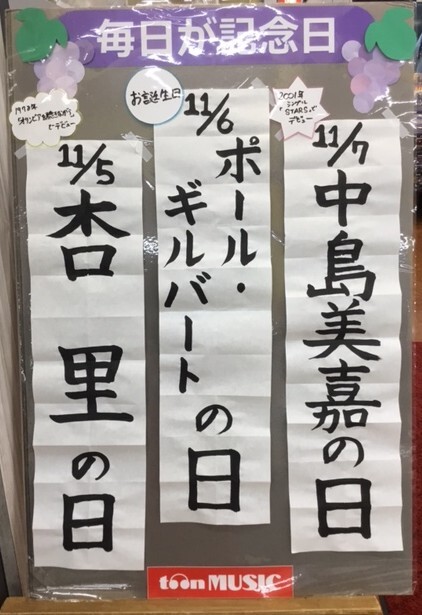 毎日が記念日
1978年
『オリビアを聴きながら』
でデビュー
11/5
杏里の日
お誕生日
11/6
ポール・
ギルバートの日
2001年
シングル
「STARS」で
デビュー
11/7
中島美嘉の日
toon MUSIC